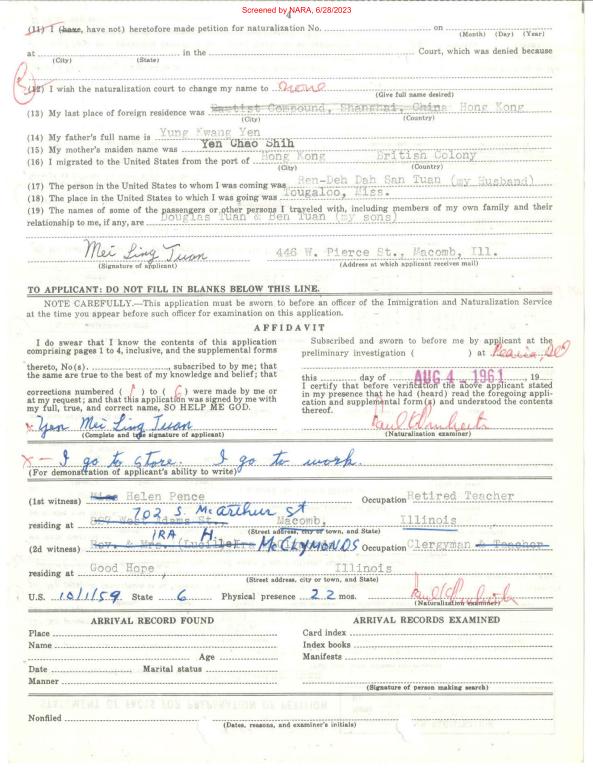 Screened by NARA, 6/28/2023
4
(11) I (have, have not) heretofore made petition for naturalization No. on
(Month) (Day) (Year)
at in the Court, which was denied because
(City) (State)
(12) I wish the naturalization court to change my name to none
(Give full name desired)
(13) My last place of foreign residence was Baptist Compound, Shanghai, China Hong Kong
(City) (Country)
(14) My father's full name is Yung Kwang Yen
(15) My mother's maiden name was Yen Chao Shih
(16) I migrated to the United States from the port of Hong Kong British Colony
(City) (Country)
(17) The person in the United States to whom I was coming was Ren-Deh Dah San Tuan (my Husband)
(18) The place in the United States to which I was going was Tougaloo, Miss.
(19) The names of some of the passengers or other persons I traveled with, including members of my own family and their
relationship to me, if any, are Douglas Tuan & Ben Tuan (my sons)
Mei Ling Tuan 446 W. Pierce St., Macomb, Ill.
(Signature of applicant) (Address at which applicant receives mail)
TO APPLICANT: DO NOT FILL IN BLANKS BELOW THIS LINE.
NOTE CAREFULLY.—This application must be sworn to before an officer of the Immigration and Naturalization Service
at the time you appear before such officer for examination on this application.
AFFIDAVIT
I do swear that I know the contents of this application
comprising pages 1 to 4, inclusive, and the supplemental forms
thereto, No(s). , subscribed to by me; that
the same are true to the best of my knowledge and belief; that
corrections numbered ( 1 ) to ( 6 ) were made by me or
at my request; and that this application was signed by me with
my full, true, and correct name, SO HELP ME GOD.
Yen Mei Ling Tuan
(Complete and true signature of applicant)
Subscribed and sworn to before me by applicant at the
preliminary investigation ( ) at Peoria, Ill
this day of AUG 4 1961, 19
I certify that before verification the above applicant stated
in my presence that he had (heard) read the foregoing appli-
cation and supplemental form(s) and understood the contents
thereof.
(Naturalization examiner)
x — I go to store. I go to work.
(For demonstration of applicant's ability to write)
(1st witness) Miss Helen Pence Occupation Retired Teacher
702 S. McArthur St
residing at West Adams St., Macomb, Illinois
(Street address, city or town, and State)
IRA H.
(2d witness) Rev. & Mrs. (Lucille) McCLYMONDS Occupation Clergyman & Teacher
residing at Good Hope, Illinois
(Street address, city or town, and State)
U.S. 10/1/59 State 6 Physical presence 22 mos.
(Naturalization examiner)
ARRIVAL RECORD FOUND
Place
Name
Age
Date Marital status
Manner
ARRIVAL RECORDS EXAMINED
Card index
Index books
Manifests
(Signature of person making search)
Nonfiled
(Dates, reasons, and examiner's initials)